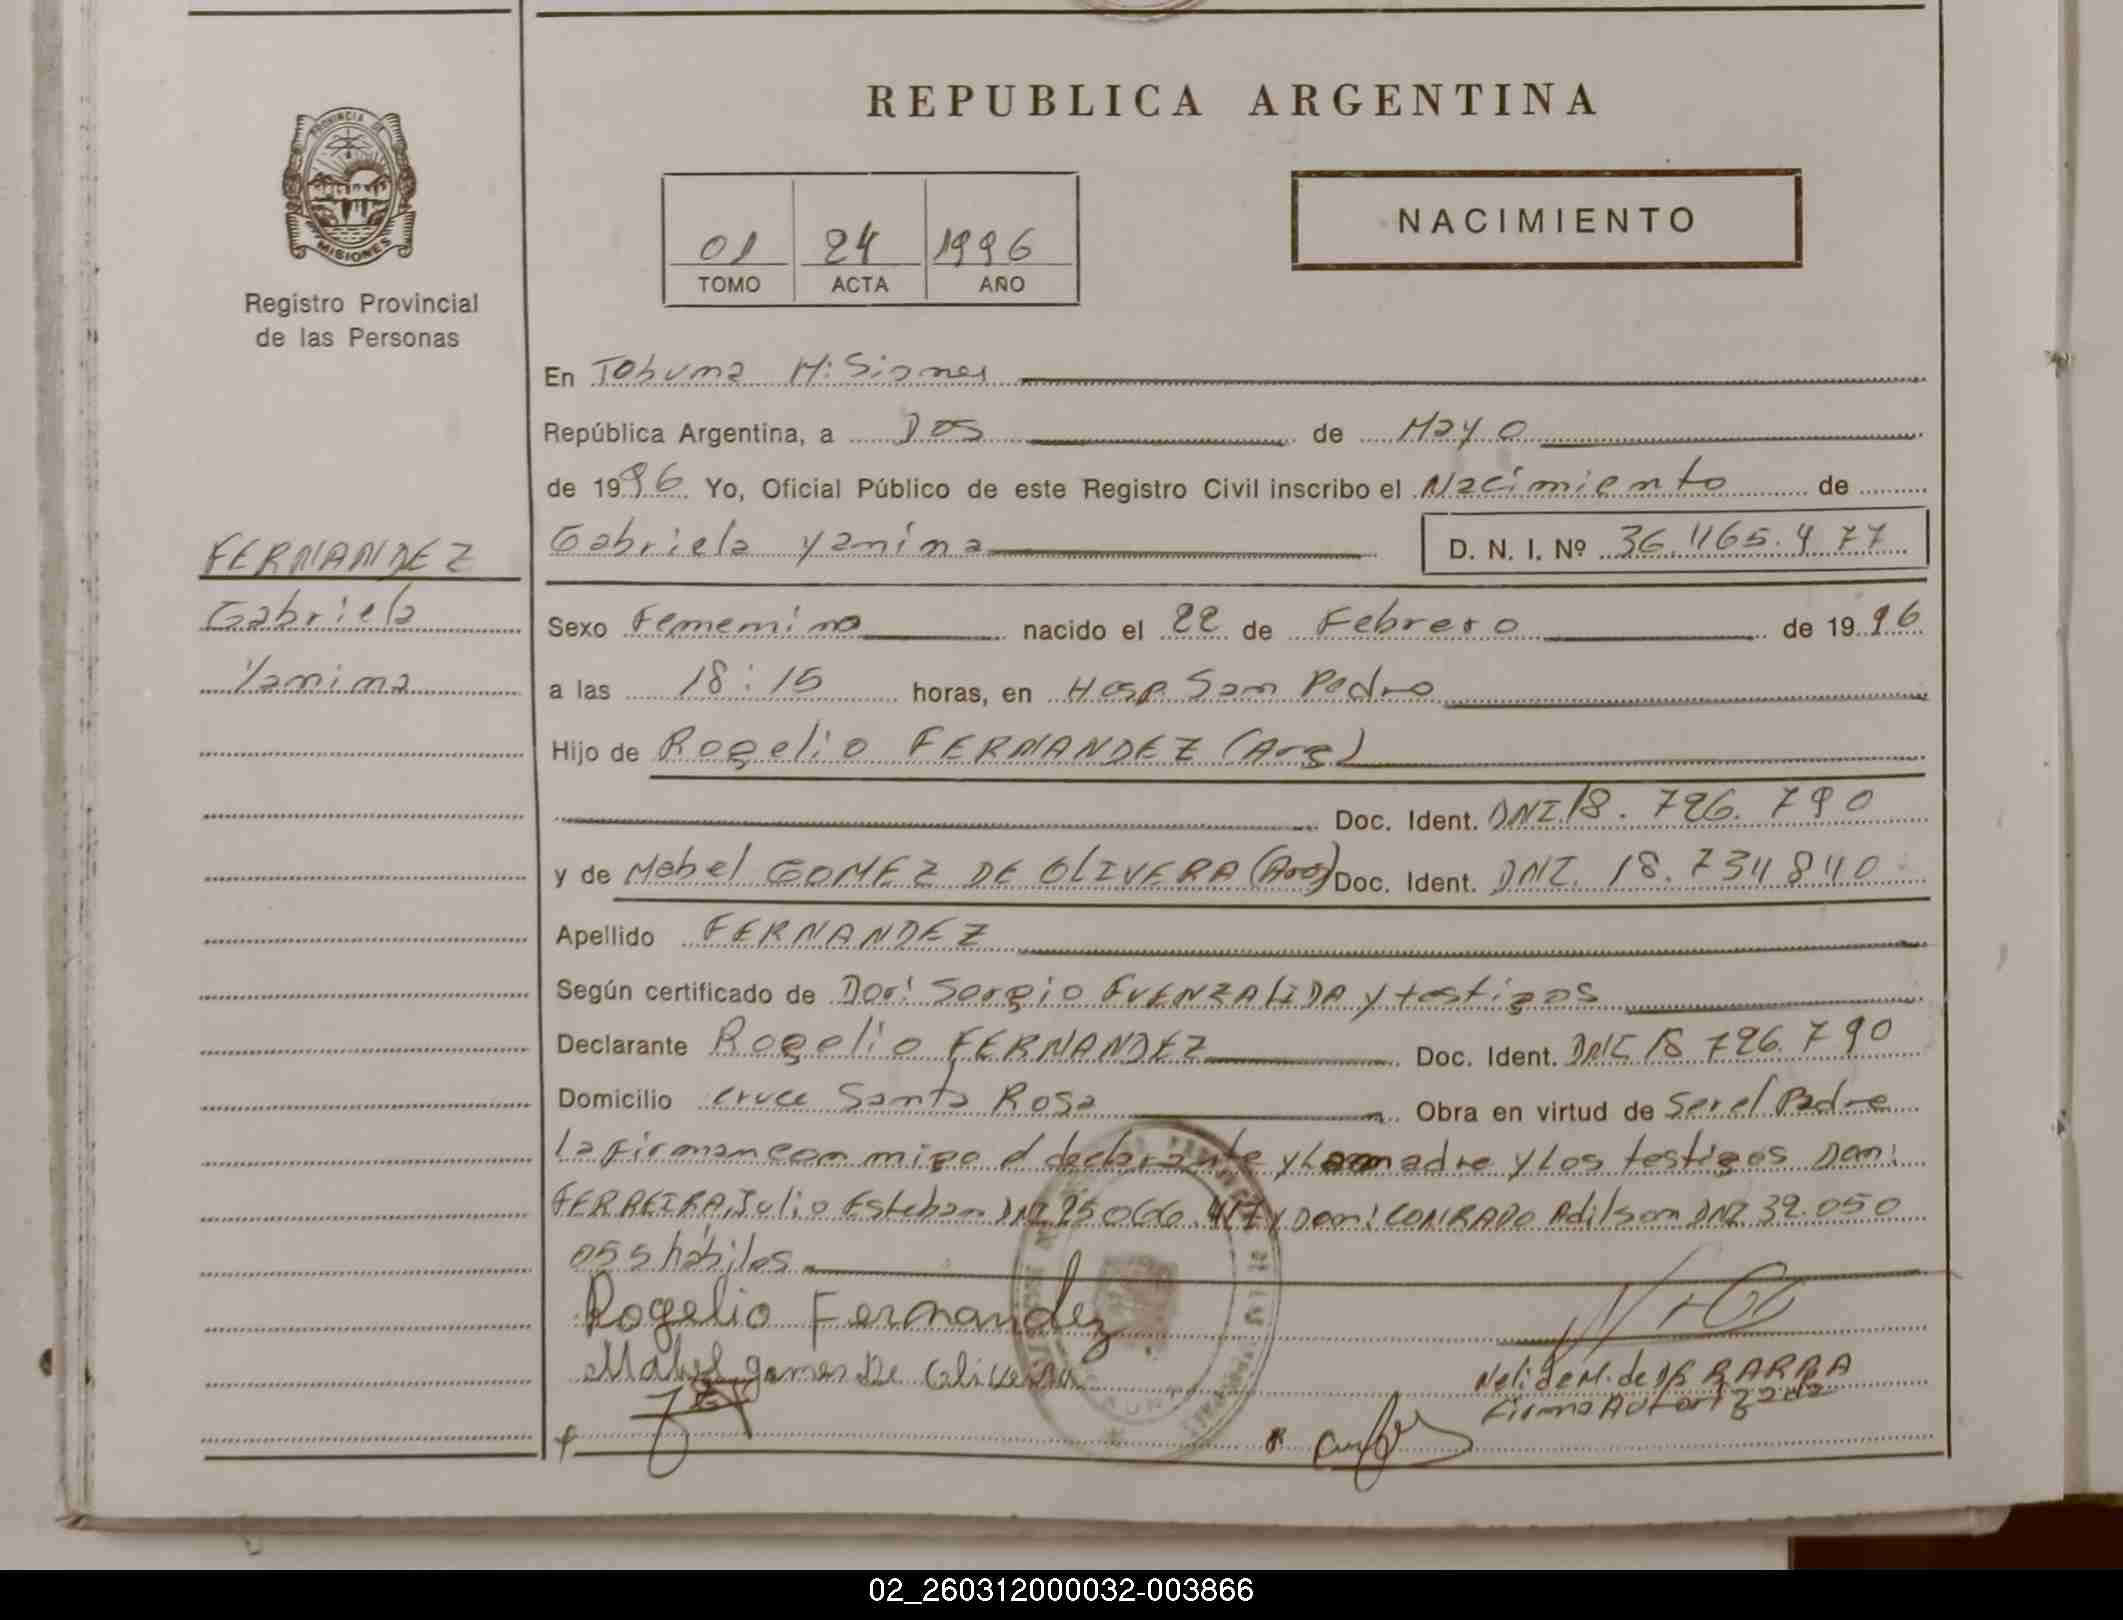 REPUBLICA ARGENTINA
PROVINCIA DE
MISIONES
Registro Provincial
de las Personas
01 24 1996
TOMO ACTA AÑO
NACIMIENTO
En Tobuna Misiones
República Argentina, a Dos de Mayo
de 1996 Yo, Oficial Público de este Registro Civil inscribo el Nacimiento de
Gabriela Yanina D. N. I. Nº 36.465.477
FERNANDEZ
Gabriela
Yanina
Sexo Femenino nacido el 22 de Febrero de 1996
a las 18:15 horas, en Hosp. San Pedro
Hijo de Rogelio FERNANDEZ (Arg)
Doc. Ident. DNI. 18.726.790
y de Mabel GOMEZ DE OLIVERA (Arg) Doc. Ident. DNI. 18.734840
Apellido FERNANDEZ
Según certificado de Dor: Sergio FUENZALIDA y testigos
Declarante Rogelio FERNANDEZ Doc. Ident. DNI 18 726.790
Domicilio cruce Santa Rosa Obra en virtud de Ser el Padre
la firman con migo el declarante y la madre y los testigos Don:
FERREIRA, Julio Esteban DNI 25066. y Don: CONRADO Adilson DNI 32.050
055 hábiles
Rogelio Fernandez
Mabel gomes De Oliveira
Nelida M. de IBARRA
Firma Autorizada
02_260312000032-003866